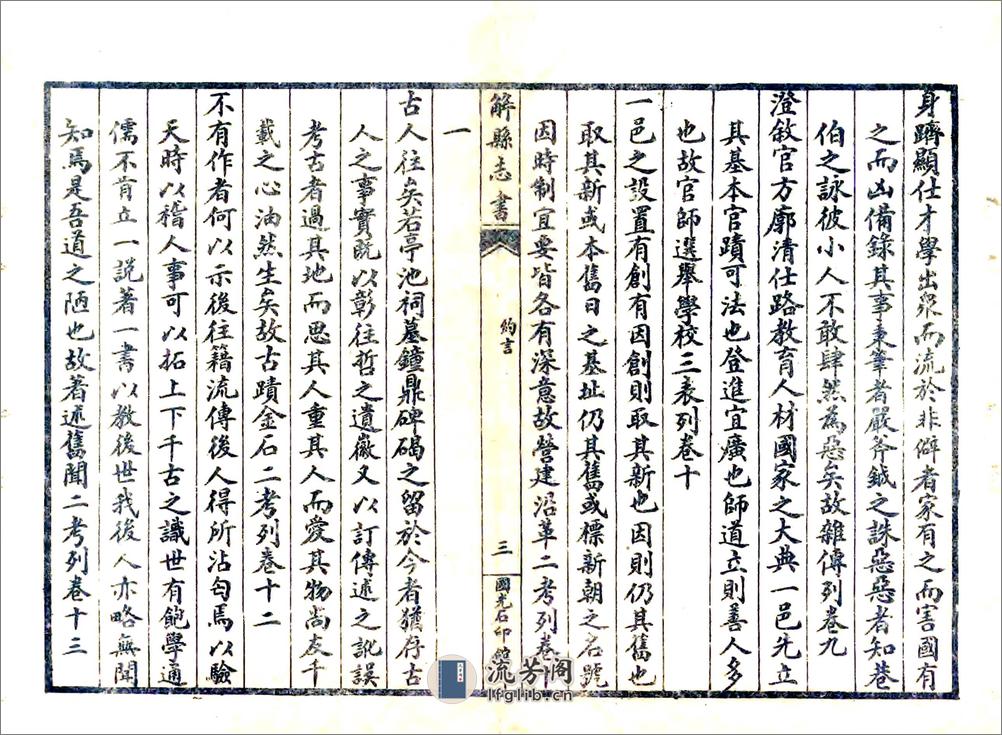 身躋顯仕才學出衆而流於非僻者家有之而害國有
之而凶備錄其事秉筆者嚴斧鉞之誅惡惡者知巷
伯之詠彼小人不敢肆然為惡矣故雜傳列卷九
澄敘官方廓清仕路教育人材國家之大典一邑先立
其基本官蹟可法也登進宜廣也師道立則善人多
也故官師選舉學校三表列卷十
一邑之設置有創有因創則取其新也因則仍其舊也
取其新或本舊日之基址仍其舊或標新朝之名號
因時制宜要皆各有深意故營建沿革二考列卷十
一
解縣志書
約言
三
國光石印館
古人往矣若亭池祠墓鐘鼎碑碣之留於今者猶存古
人之事實既以彰往哲之遺徽又以訂傳述之訛誤
考古者過其地而思其人重其人而愛其物尚友千
載之心油然生矣故古蹟金石二考列卷十二
不有作者何以示後往籍流傳後人得所沾匄焉以驗
天時以稽人事可以拓上下千古之識世有飽學通
儒不肯立一說著一書以教後世我後人亦略無聞
知焉是吾道之陋也故著述舊聞二考列卷十三
流芳閣
lfglib.cn